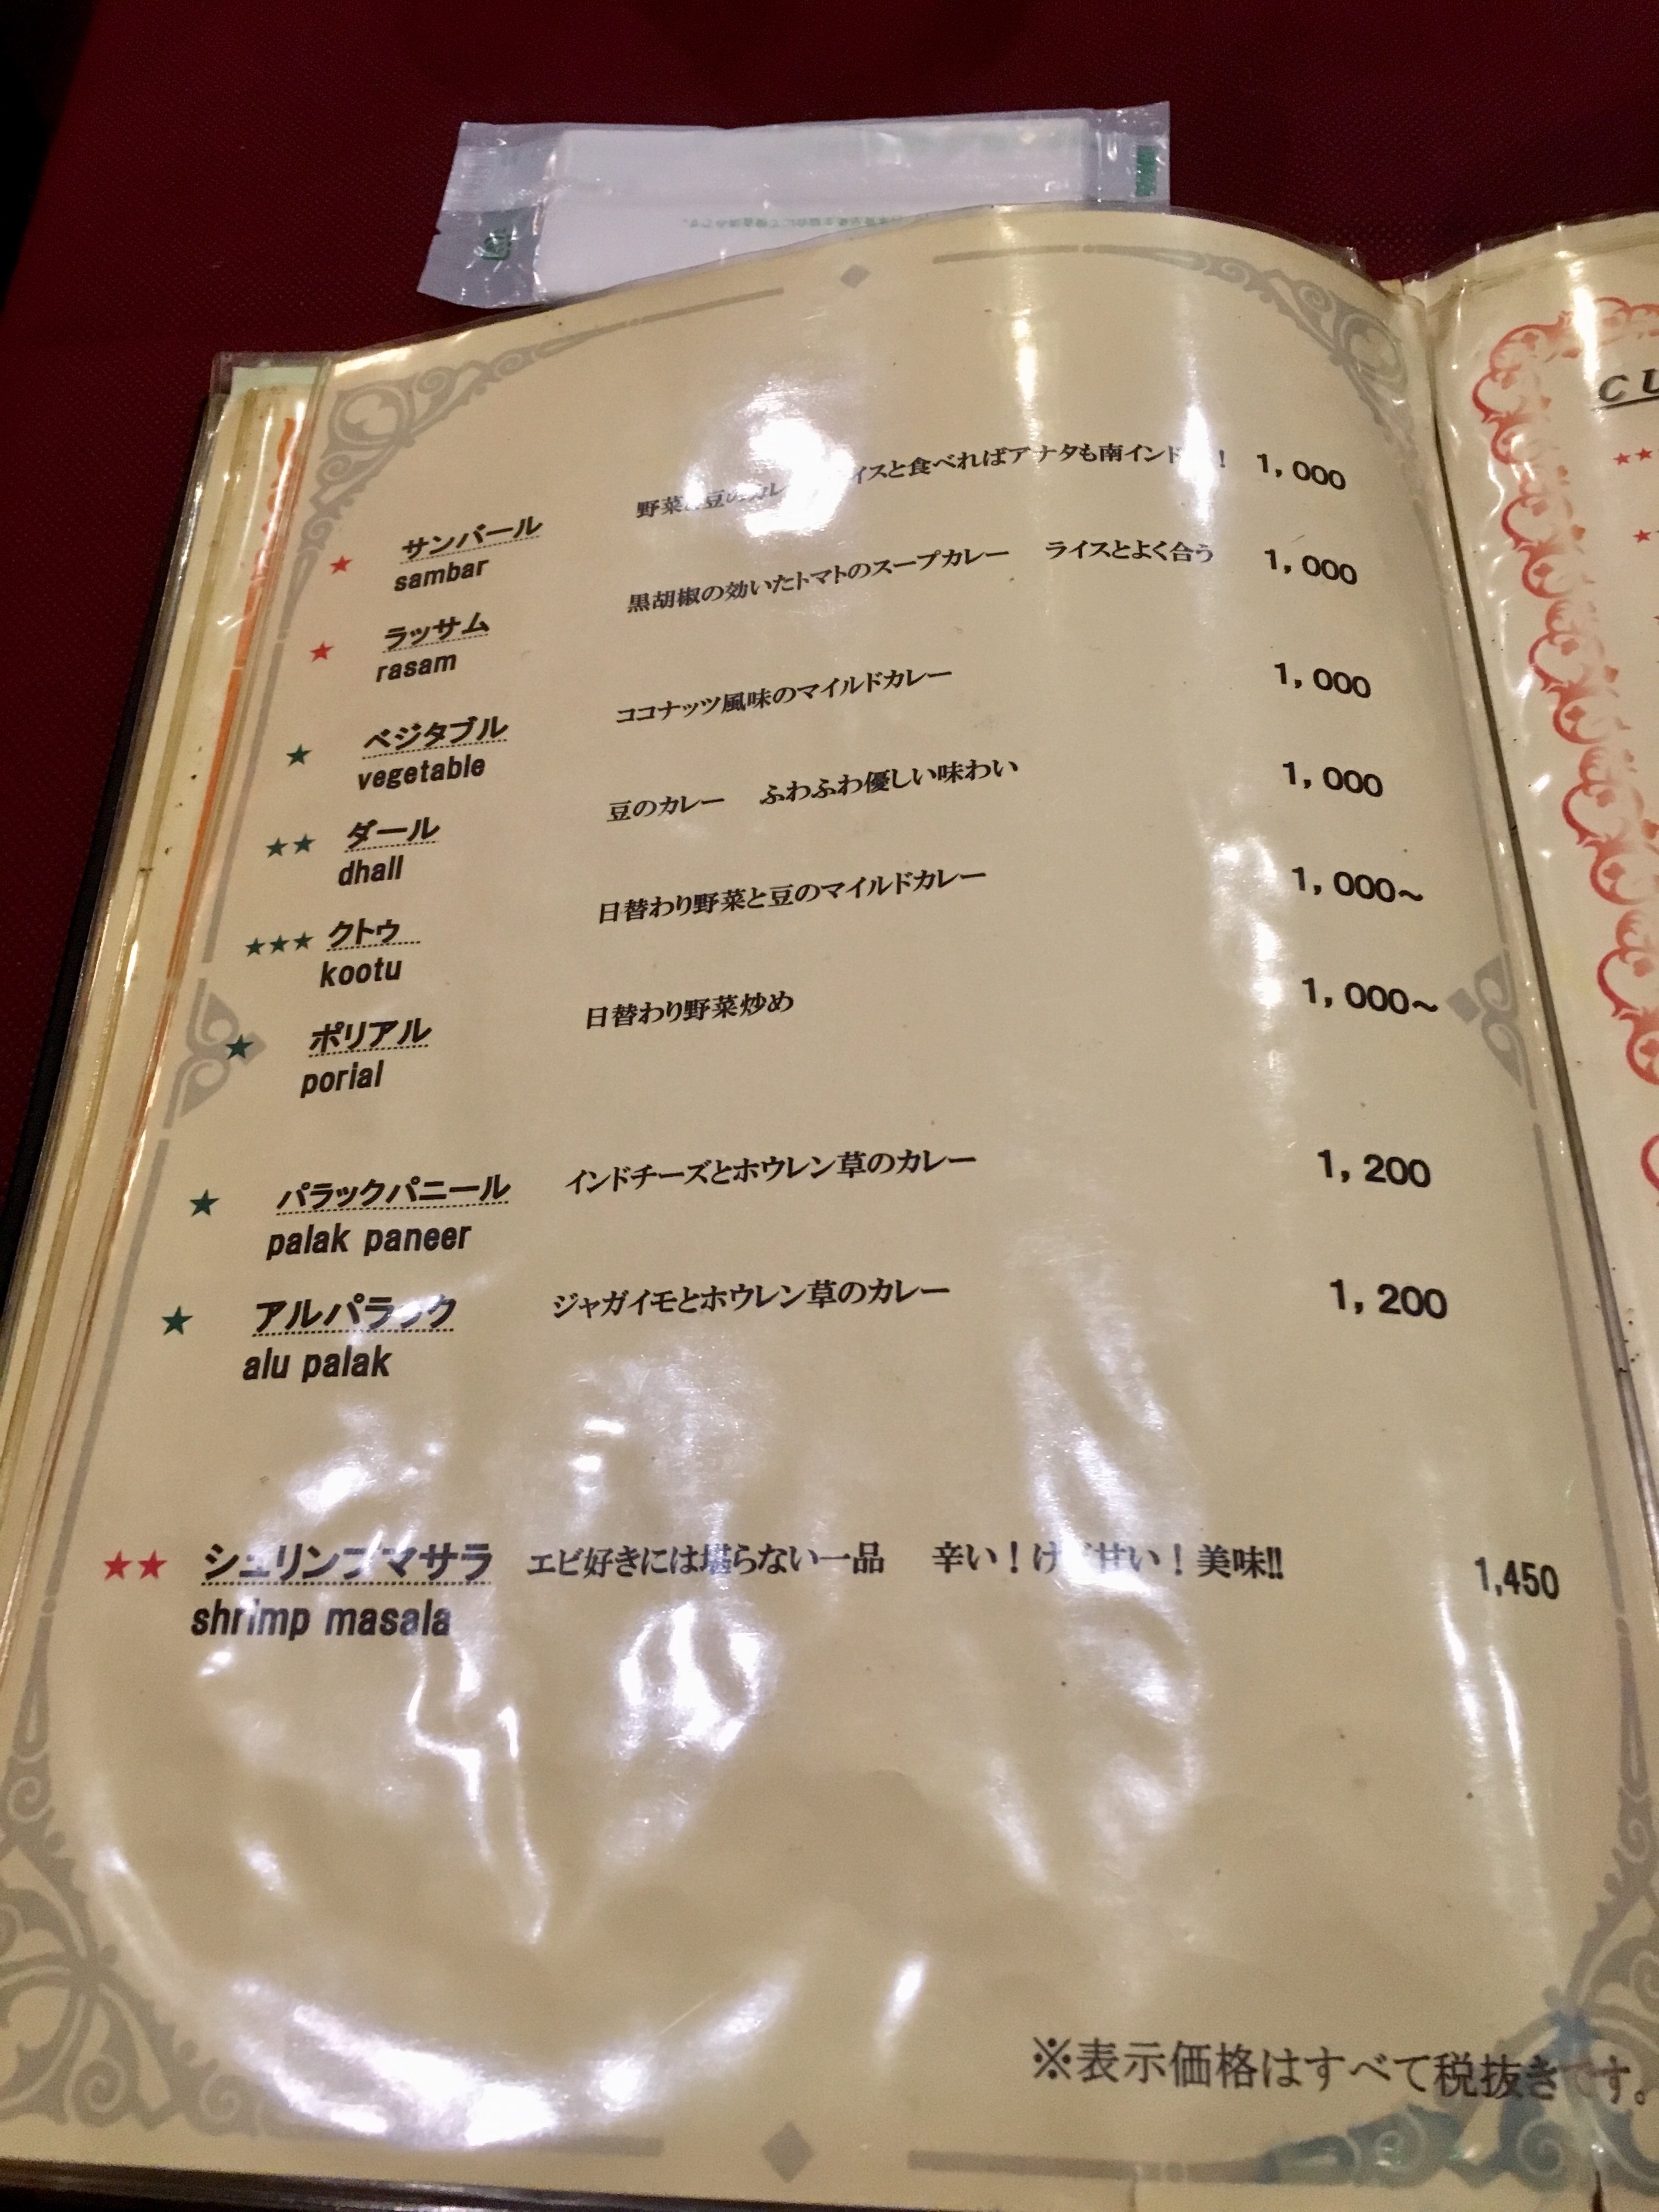 ★ サンバール 野菜と豆のカレー ライスと食べればアナタも南インド ！ 1,000
sambar
★ ラッサム 黒胡椒の効いたトマトのスープカレー ライスとよく合う 1,000
rasam
★ ベジタブル ココナッツ風味のマイルドカレー 1,000
vegetable
★★ ダール 豆のカレー ふわふわ優しい味わい 1,000
dhall
★★★ クトゥ 日替わり野菜と豆のマイルドカレー 1,000～
kootu
★ ポリアル 日替わり野菜炒め 1,000～
porial
★ パラックパニール インドチーズとホウレン草のカレー 1,200
palak paneer
★ アルパラック ジャガイモとホウレン草のカレー 1,200
alu palak
★★ シュリンプマサラ エビ好きには堪らない一品 辛い！けど甘い！美味!! 1,450
shrimp masala
※表示価格はすべて税抜きです。
★★
★